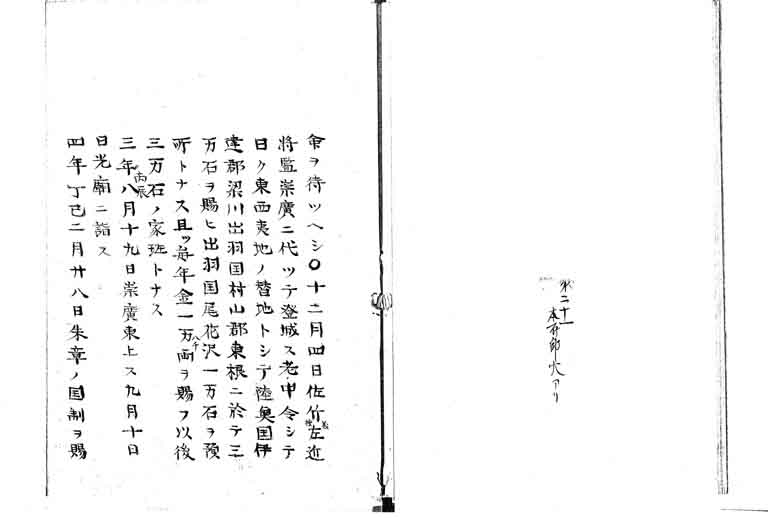 第二十一
本所郎火アリ
命ヲ待ツヘシ〇十二月四日佐竹左近
将監崇廣ニ代ツテ登城ス老中令シテ
日ク東西夷地ノ替地トシテ陸奥国伊
達郡梁川出羽国村山郡東根ニ於テ三
万石ヲ賜ヒ出羽国尾花沢一万石ヲ預
所トナス且ツ毎年金一万八千両ヲ賜フ以後
三万石ノ家班トナス
三年丙辰八月十九日崇廣東上ス九月十日
日光廟ニ詣ス
四年丁巳二月廿八日朱章ノ国制ヲ賜